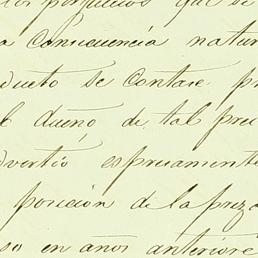 los perjuicios que se
a consecuencia natur
ducto se contare pr
l dueño de tal pre
dvertió espresamente
posicion de la preza
so en anos anteriore